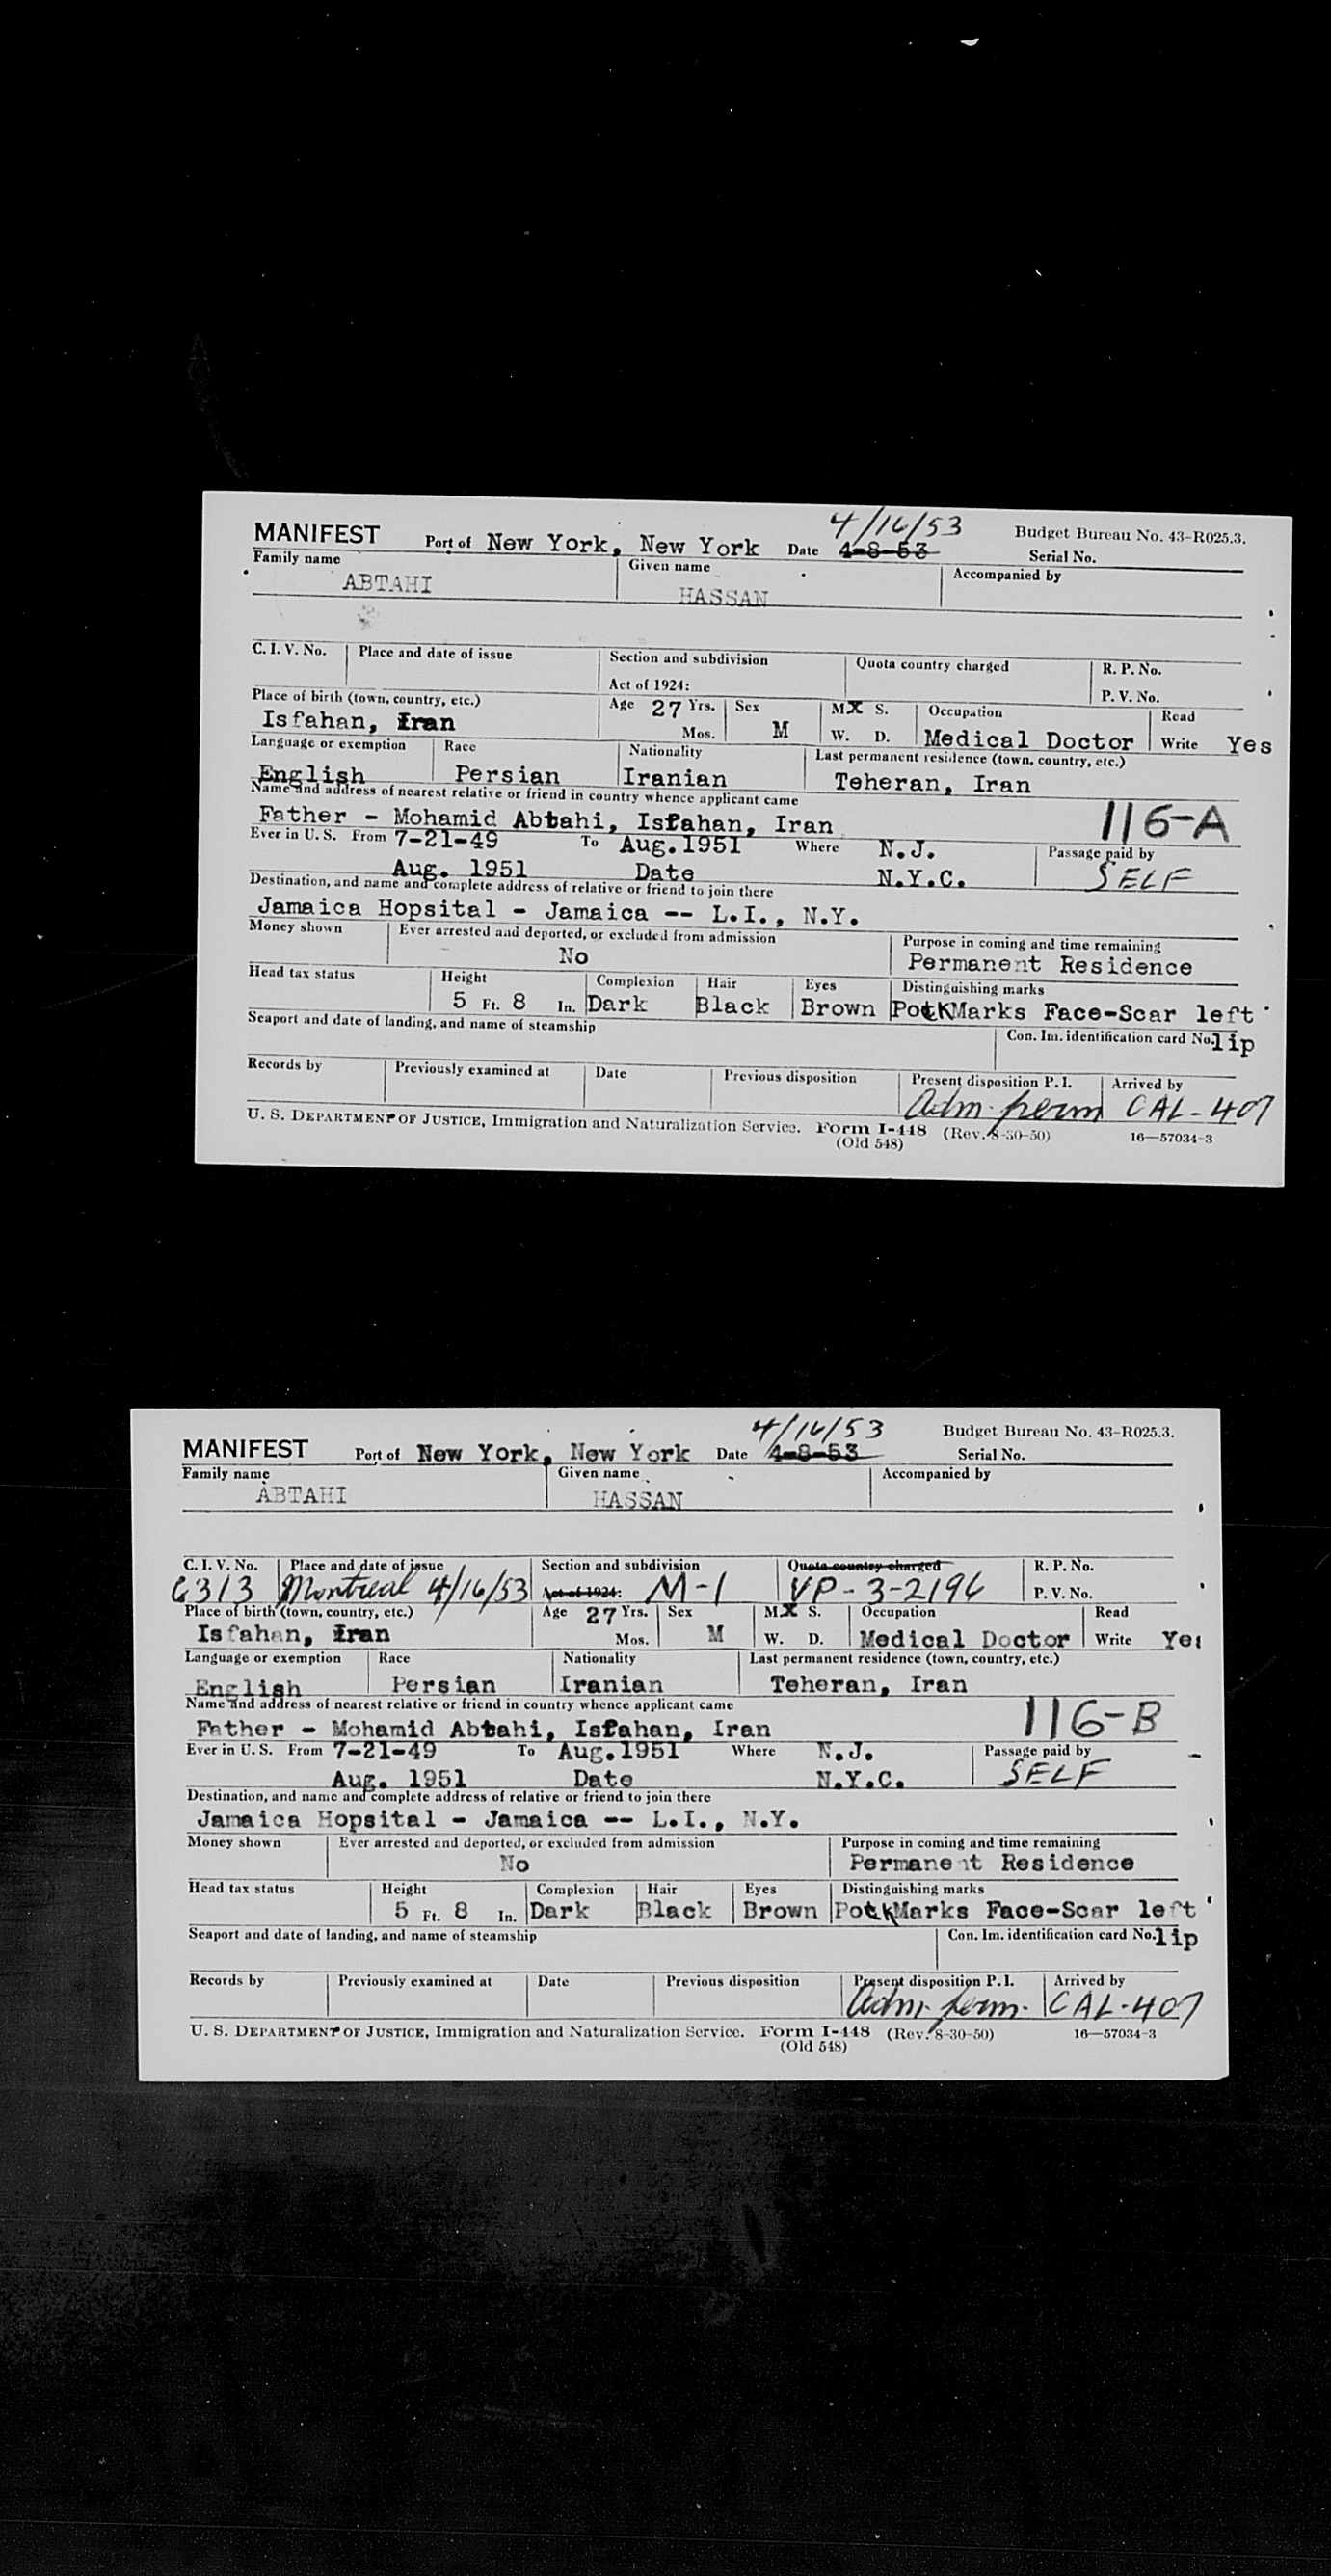 4/16/53
MANIFEST Port of New York, New York Date 4-8-53 Budget Bureau No. 43-R025.3.
Serial No.
Family name Given name Accompanied by
ABTAHI HASSAN
C. I. V. No. Place and date of issue Section and subdivision Quota country charged R. P. No.
Act of 1924: P. V. No.
Place of birth (town, country, etc.) Age 27 Yrs. Sex M X S. Occupation Read
Isfahan, Iran Mos. M W. D. Medical Doctor Write Yes
Language or exemption Race Nationality Last permanent residence (town, country, etc.)
English Persian Iranian Teheran, Iran
Name and address of nearest relative or friend in country whence applicant came
Father - Mohamid Abtahi, Isfahan, Iran 116-A
Ever in U. S. From 7-21-49 To Aug.1951 Where N.J. Passage paid by
Aug. 1951 Date N.Y.C. SELF
Destination, and name and complete address of relative or friend to join there
Jamaica Hopsital - Jamaica -- L.I., N.Y.
Money shown Ever arrested and deported, or excluded from admission Purpose in coming and time remaining
No Permanent Residence
Head tax status Height Complexion Hair Eyes Distinguishing marks
5 Ft. 8 In. Dark Black Brown Pock Marks Face-Scar left
Seaport and date of landing, and name of steamship Con. Im. identification card No. lip
Records by Previously examined at Date Previous disposition Present disposition P. I. Arrived by
adm. perm CAL-407
U. S. DEPARTMENT OF JUSTICE, Immigration and Naturalization Service. Form I-448 (Rev. 8-30-50) 16—57034-3
(Old 548)
4/16/53
MANIFEST Port of New York, New York Date 4-8-53 Budget Bureau No. 43-R025.3.
Serial No.
Family name Given name Accompanied by
ABTAHI HASSAN
C. I. V. No. Place and date of issue Section and subdivision Quota country charged R. P. No.
6313 Montreal 4/16/53 Act of 1924: M-1 VP-3-2196 P. V. No.
Place of birth (town, country, etc.) Age 27 Yrs. Sex M X S. Occupation Read
Isfahan, Iran Mos. M W. D. Medical Doctor Write Yes
Language or exemption Race Nationality Last permanent residence (town, country, etc.)
English Persian Iranian Teheran, Iran
Name and address of nearest relative or friend in country whence applicant came
Father - Mohamid Abtahi, Isfahan, Iran 116-B
Ever in U. S. From 7-21-49 To Aug.1951 Where N.J. Passage paid by
Aug. 1951 Date N.Y.C. SELF
Destination, and name and complete address of relative or friend to join there
Jamaica Hopsital - Jamaica -- L.I., N.Y.
Money shown Ever arrested and deported, or excluded from admission Purpose in coming and time remaining
No Permanent Residence
Head tax status Height Complexion Hair Eyes Distinguishing marks
5 Ft. 8 In. Dark Black Brown Pock Marks Face-Scar left
Seaport and date of landing, and name of steamship Con. Im. identification card No. lip
Records by Previously examined at Date Previous disposition Present disposition P. I. Arrived by
adm. perm. CAL-407
U. S. DEPARTMENT OF JUSTICE, Immigration and Naturalization Service. Form I-448 (Rev. 8-30-50) 16—57034-3
(Old 548)